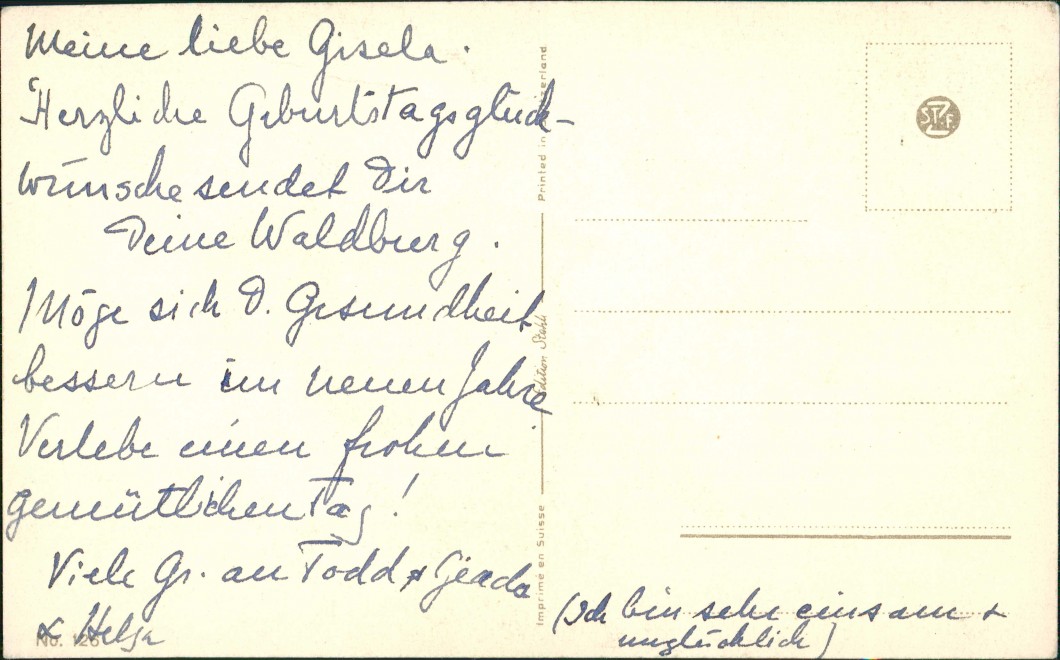 Meine liebe Gisela.
Herzliche Geburtstagsglück-
wünsche sendet Dir
Deine Waldburg.
Möge sich d. Gesundheit
bessern im neuen Jahre
Verlebe einen frohen
gemütlichen Tag!
Viele Gr. an Todd &
& Helga
No. 126
Imprimé en Suisse
Edition Stehli
Printed in Switzerland
(Ich bin sehr einsam &
unglücklich)